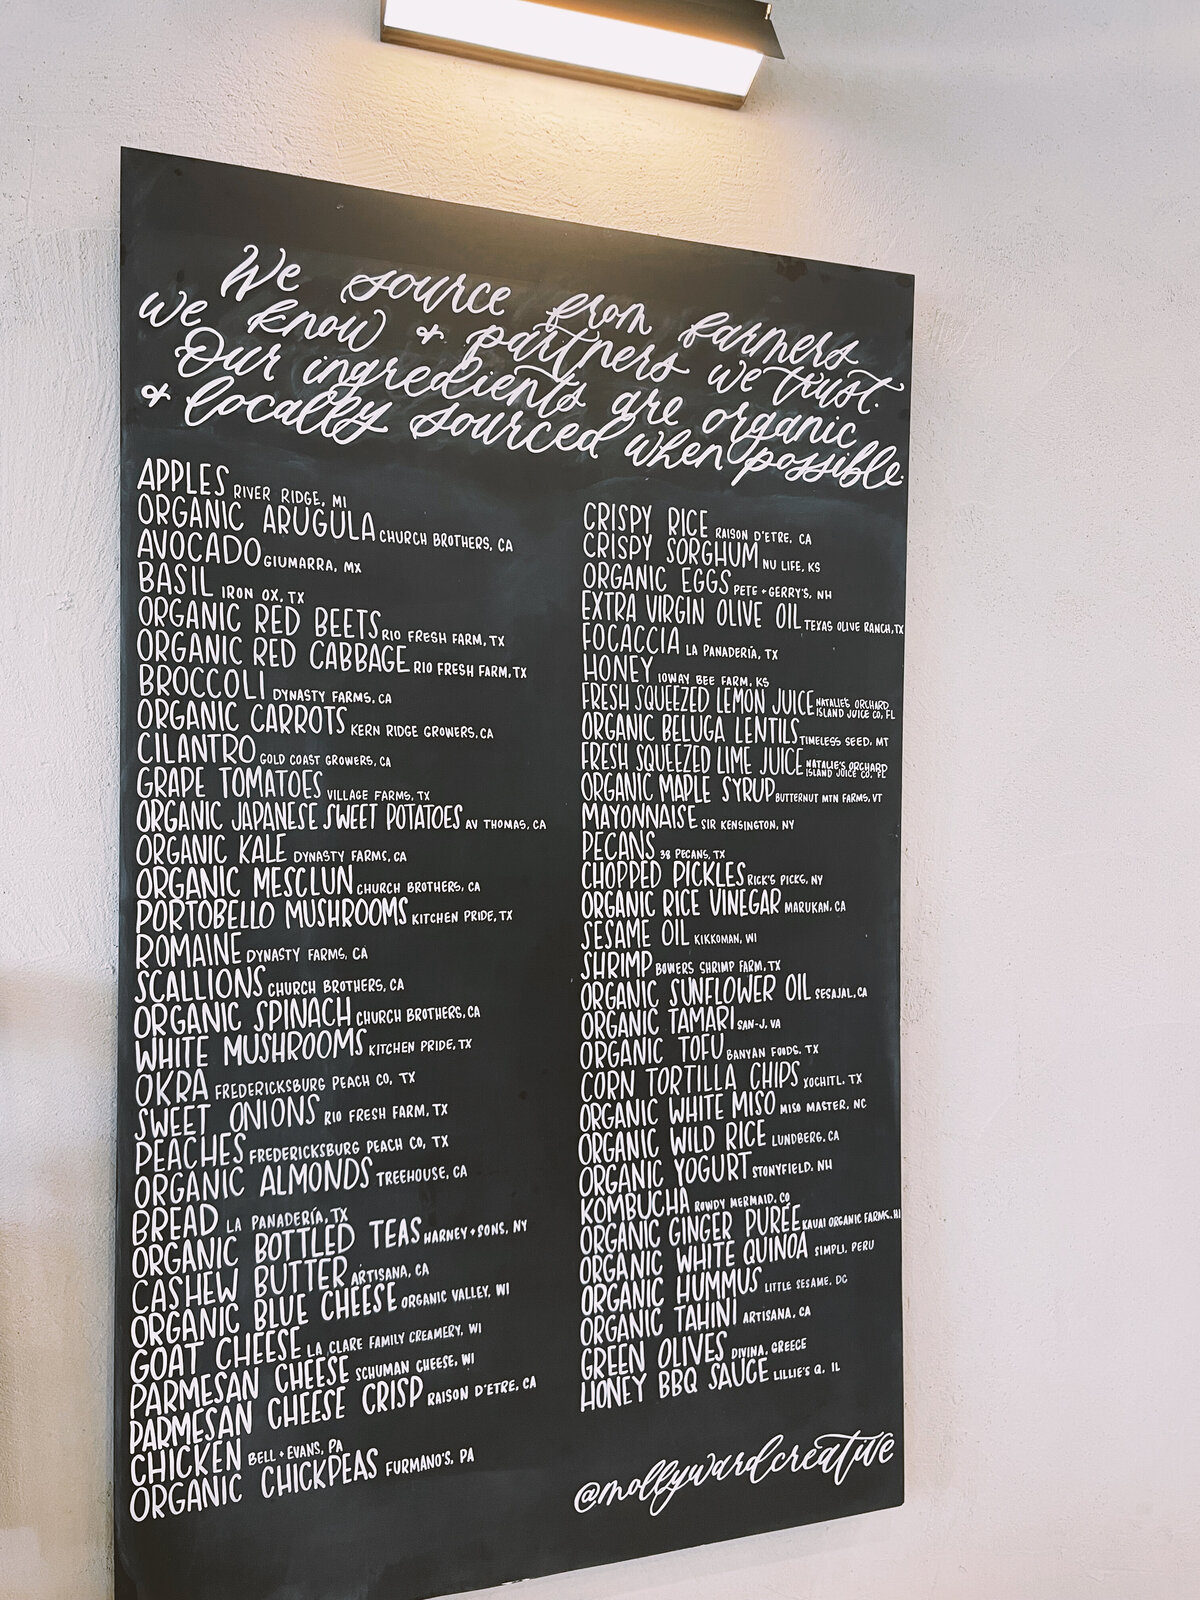 We source from farmers
we know + partners we trust.
Our ingredients are organic
+ locally sourced when possible.
APPLES RIVER RIDGE, MI
ORGANIC ARUGULA CHURCH BROTHERS, CA
AVOCADO GIUMARRA, MX
BASIL IRON OX, TX
ORGANIC RED BEETS RIO FRESH FARM, TX
ORGANIC RED CABBAGE RIO FRESH FARM, TX
BROCCOLI DYNASTY FARMS, CA
ORGANIC CARROTS KERN RIDGE GROWERS, CA
CILANTRO GOLD COAST GROWERS, CA
GRAPE TOMATOES VILLAGE FARMS, TX
ORGANIC JAPANESE SWEET POTATOES AV THOMAS, CA
ORGANIC KALE DYNASTY FARMS, CA
ORGANIC MESCLUN CHURCH BROTHERS, CA
PORTOBELLO MUSHROOMS KITCHEN PRIDE, TX
ROMAINE DYNASTY FARMS, CA
SCALLIONS CHURCH BROTHERS, CA
ORGANIC SPINACH CHURCH BROTHERS, CA
WHITE MUSHROOMS KITCHEN PRIDE, TX
OKRA FREDERICKSBURG PEACH CO, TX
SWEET ONIONS RIO FRESH FARM, TX
PEACHES FREDERICKSBURG PEACH CO, TX
ORGANIC ALMONDS TREEHOUSE, CA
BREAD LA PANADERÍA, TX
ORGANIC BOTTLED TEAS HARNEY + SONS, NY
CASHEW BUTTER ARTISANA, CA
ORGANIC BLUE CHEESE ORGANIC VALLEY, WI
GOAT CHEESE LA CLARE FAMILY CREAMERY, WI
PARMESAN CHEESE SCHUMAN CHEESE, WI
PARMESAN CHEESE CRISP RAISON D'ETRE, CA
CHICKEN BELL + EVANS, PA
ORGANIC CHICKPEAS FURMANO'S, PA
CRISPY RICE RAISON D'ETRE, CA
CRISPY SORGHUM NU LIFE, KS
ORGANIC EGGS PETE + GERRY'S, NH
EXTRA VIRGIN OLIVE OIL TEXAS OLIVE RANCH, TX
FOCACCIA LA PANADERÍA, TX
HONEY IOWAY BEE FARM, KS
FRESH SQUEEZED LEMON JUICE NATALIE'S ORCHARD
ISLAND JUICE CO, FL
ORGANIC BELUGA LENTILS TIMELESS SEED, MT
FRESH SQUEEZED LIME JUICE NATALIE'S ORCHARD
ISLAND JUICE CO, FL
ORGANIC MAPLE SYRUP BUTTERNUT MTN FARMS, VT
MAYONNAISE SIR KENSINGTON, NY
PECANS 38 PECANS, TX
CHOPPED PICKLES RICK'S PICKS, NY
ORGANIC RICE VINEGAR MARUKAN, CA
SESAME OIL KIKKOMAN, WI
SHRIMP BOWERS SHRIMP FARM, TX
ORGANIC SUNFLOWER OIL SESAJAL, CA
ORGANIC TAMARI SAN-J, VA
ORGANIC TOFU BANYAN FOODS, TX
CORN TORTILLA CHIPS XOCHITL, TX
ORGANIC WHITE MISO MISO MASTER, NC
ORGANIC WILD RICE LUNDBERG, CA
ORGANIC YOGURT STONYFIELD, NH
KOMBUCHA ROWDY MERMAID, CO
ORGANIC GINGER PURÉE KAUAI ORGANIC FARMS, HI
ORGANIC WHITE QUINOA SIMPLI, PERU
ORGANIC HUMMUS LITTLE SESAME, DC
ORGANIC TAHINI ARTISANA, CA
GREEN OLIVES DIVINA, GREECE
HONEY BBQ SAUCE LILLIE'S Q, IL
@mollywardcreative